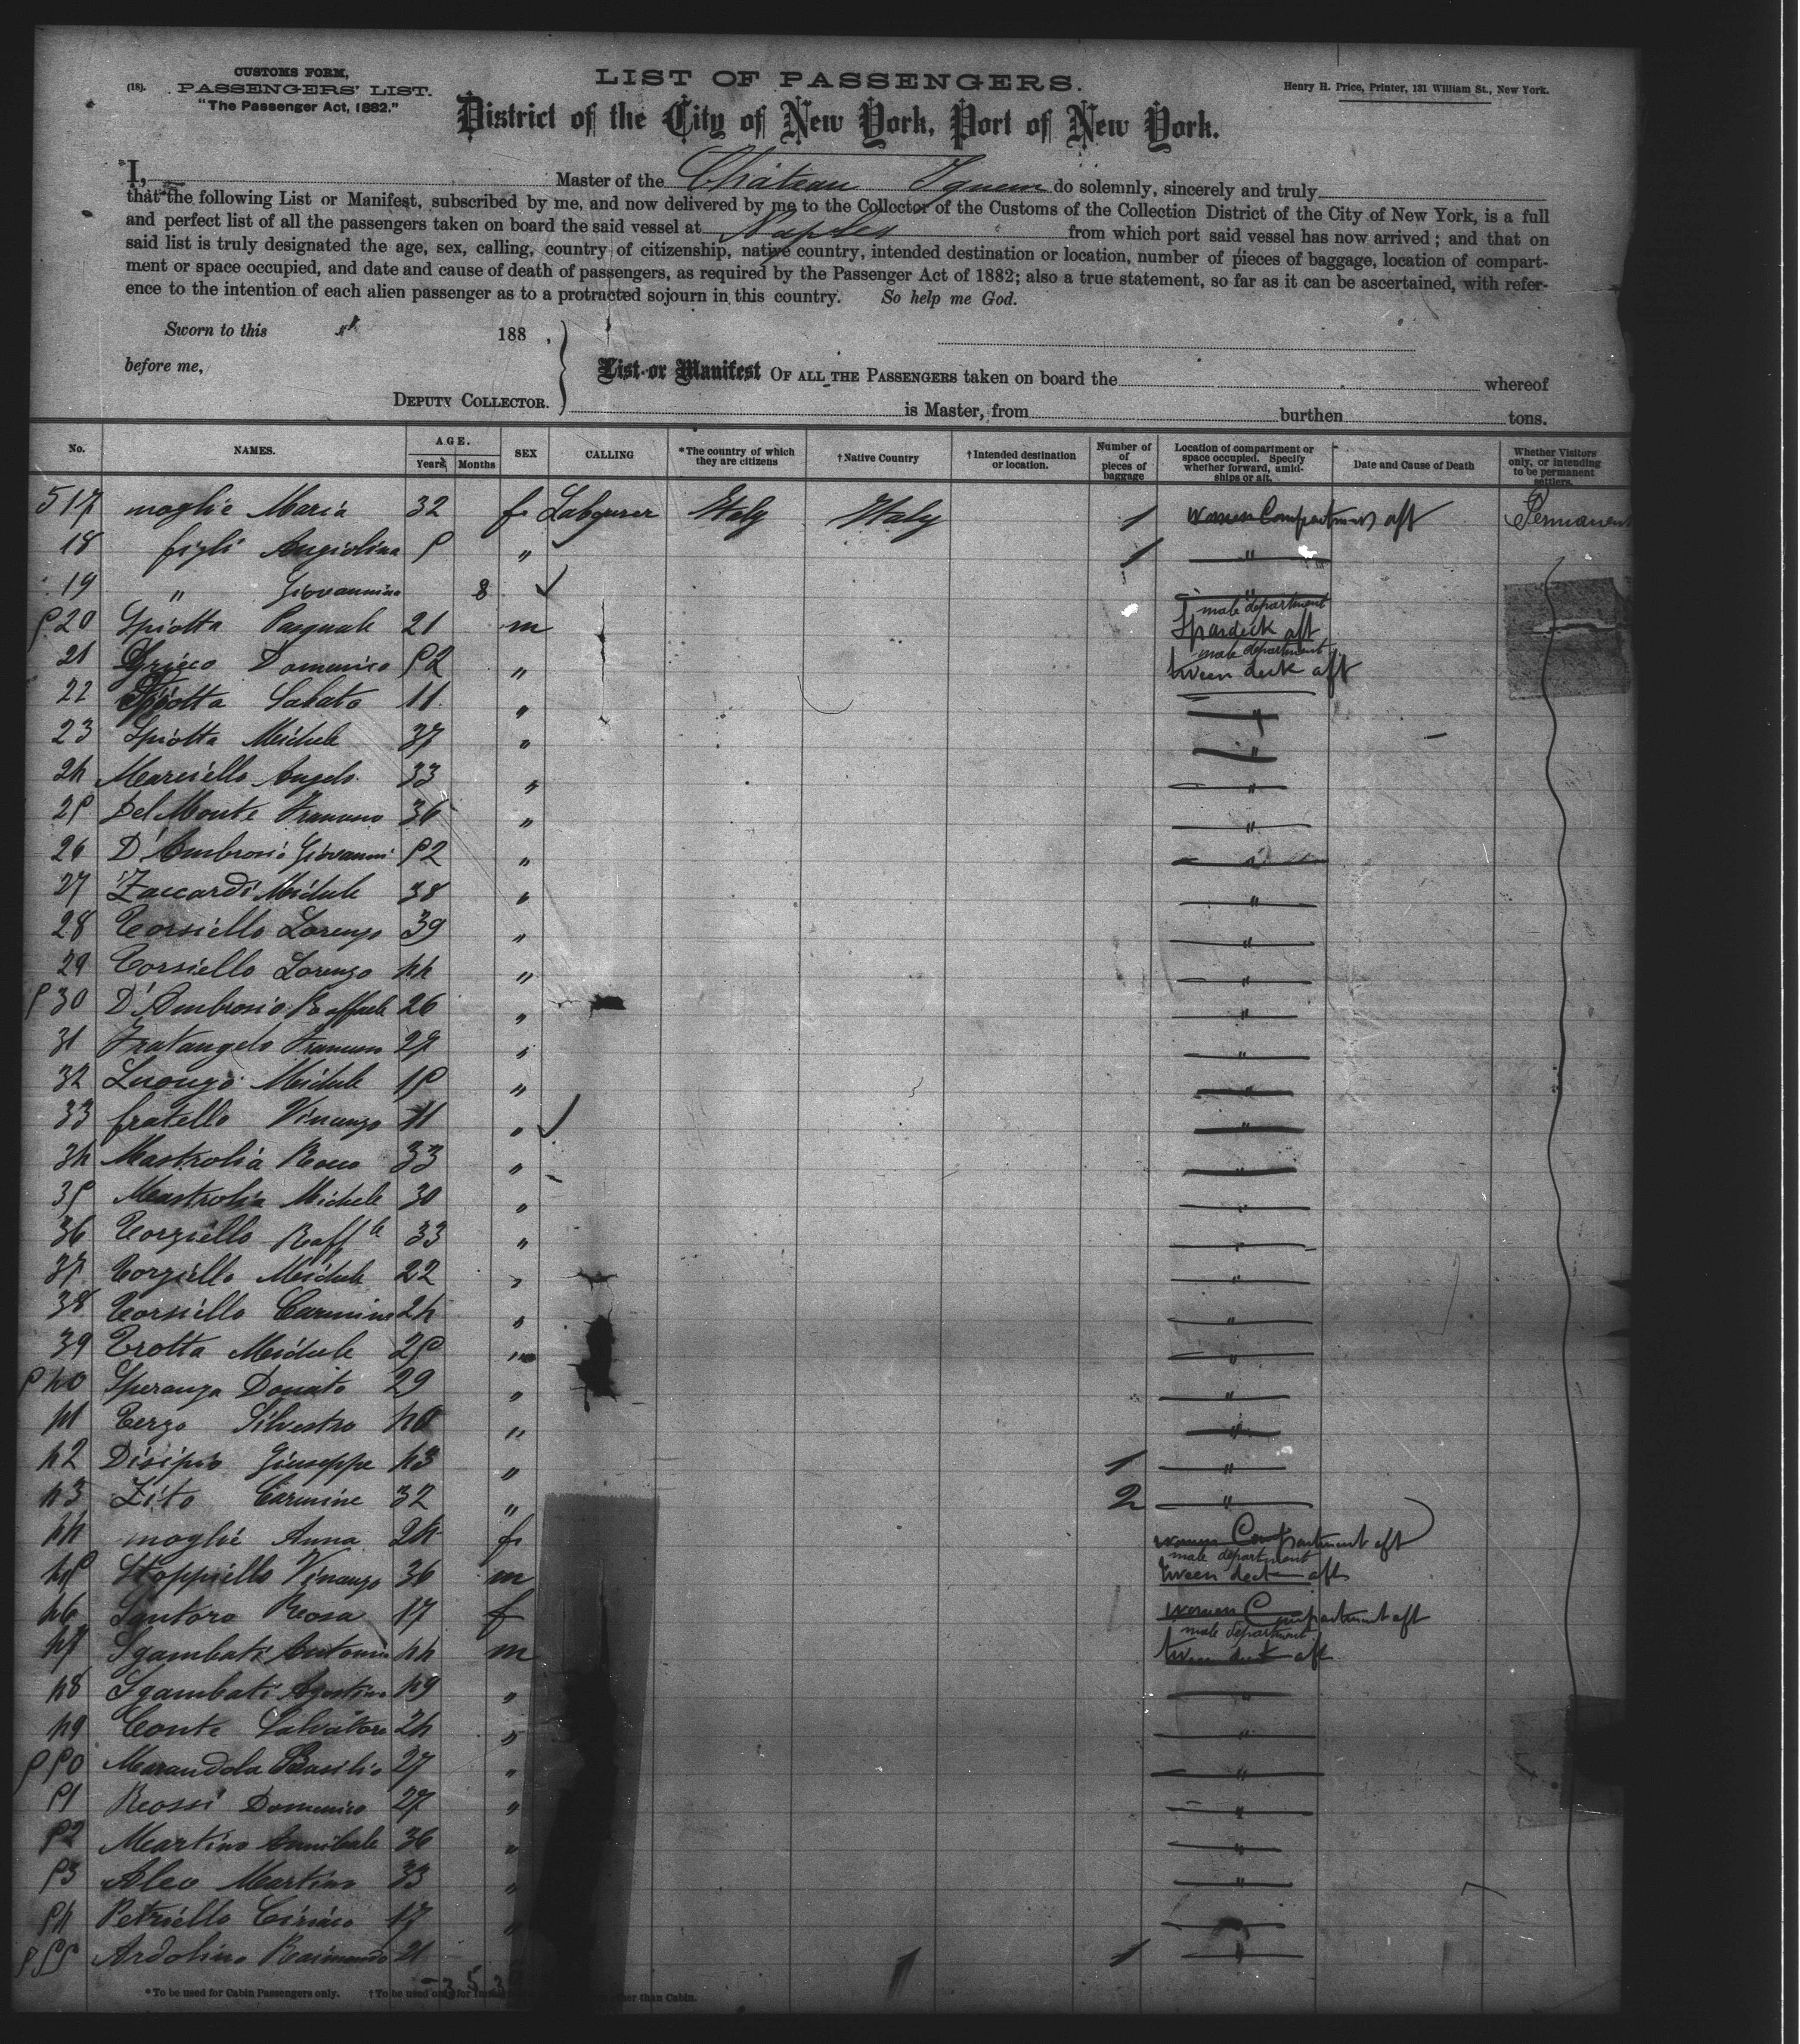 CUSTOMS FORM,
(18). PASSENGERS' LIST.
"The Passenger Act, 1882."
LIST OF PASSENGERS.
Henry H. Price, Printer, 131 William St., New York.
District of the City of New York, Port of New York.
I, Master of the Château Yquem do solemnly, sincerely and truly
that the following List or Manifest, subscribed by me, and now delivered by me to the Collector of the Customs of the Collection District of the City of New York, is a full
and perfect list of all the passengers taken on board the said vessel at Naples from which port said vessel has now arrived; and that on
said list is truly designated the age, sex, calling, country of citizenship, native country, intended destination or location, number of pieces of baggage, location of compart-
ment or space occupied, and date and cause of death of passengers, as required by the Passenger Act of 1882; also a true statement, so far as it can be ascertained, with refer-
ence to the intention of each alien passenger as to a protracted sojourn in this country. So help me God.
Sworn to this 188 .
before me,
DEPUTY COLLECTOR.
List or Manifest OF ALL THE PASSENGERS taken on board the whereof
is Master, from burthen tons.
No. NAMES. AGE. Years Months SEX CALLING *The country of which they are citizens †Native Country †Intended destination or location. Number of pieces of baggage Location of compartment or space occupied. Specify whether forward, amidships or aft. Date and Cause of Death Whether Visitors only, or intending to be permanent settlers.
517 moglie Maria 32 f Labourer Italy Italy 1 women Compartment aft Permanent
18 figli Angiolina 5 " 1 "
19 " Giovannina 8 "
520 Spiotta Pasquale 21 m male department Spardeck aft
21 Grieco Domenico 52 " male department tween deck aft
22 Spiotta Sabato 11 " "
23 Spiotta Michele 37 " "
24 Marciello Angelo 33 " "
25 Del Monte Francesco 36 " "
26 D'Ambrosio Giovanni 52 " "
27 Zaccardi Michele 38 " "
28 Torsiello Lorenzo 39 " "
29 Torsiello Lorenzo 44 " "
530 D'Ambrosio Raffaele 26 " "
31 Fratangelo Francesco 27 " "
32 Luongo Michele 15 " "
33 fratello Vincenzo 11 " "
34 Mastrolia Rocco 33 " "
35 Mastrolia Michele 30 " "
36 Torziello Raffle 33 " "
37 Torziello Michele 22 " "
38 Torsiello Carmine 24 " "
39 Trotta Michele 25 " "
540 Speranza Donato 29 " "
41 Terzo Silvestro 40 " "
42 Disipio Giuseppe 43 " 1 "
43 Zito Carmine 32 " 2 "
44 moglie Anna 24 f women Compartment aft
45 Stoppiello Vincenzo 36 m male department tween deck aft
46 Santoro Rosa 17 f women Compartment aft
47 Sgambati Antonio 44 m male department tween deck aft
48 Sgambati Agostino 49 " "
49 Conte Salvatore 24 " "
550 Marandola Basilio 27 " "
51 Rossi Domenico 27 " "
52 Martino Annibale 36 " "
53 Aleo Martino 33 " "
54 Petriello Ciriaco 17 " "
555 Ardolino Raimondo 21 1 "
*To be used for Cabin Passengers only. †To be used only for other than Cabin.